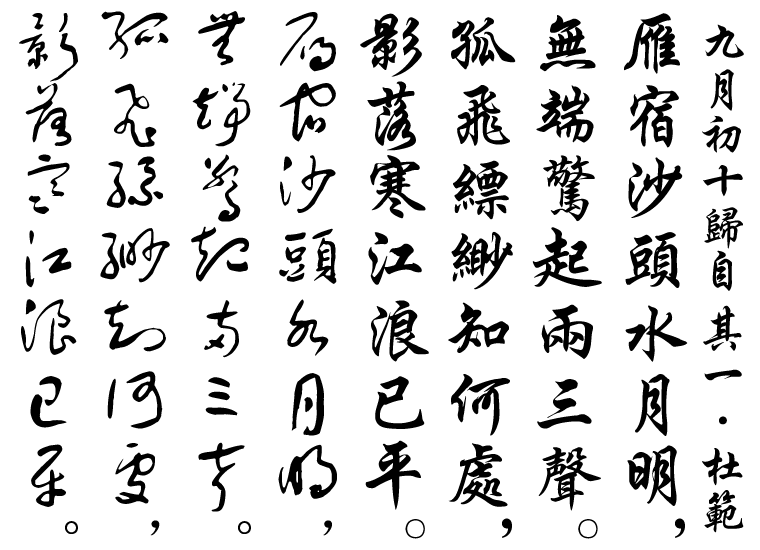 九月初十歸自 其一·杜範
雁宿沙頭水月明，
無端驚起兩三聲。
孤飛縹緲知何處，
影落寒江浪已平。
雁宿沙頭水月明，
無端驚起兩三聲。
孤飛縹緲知何處，
影落寒江浪已平。